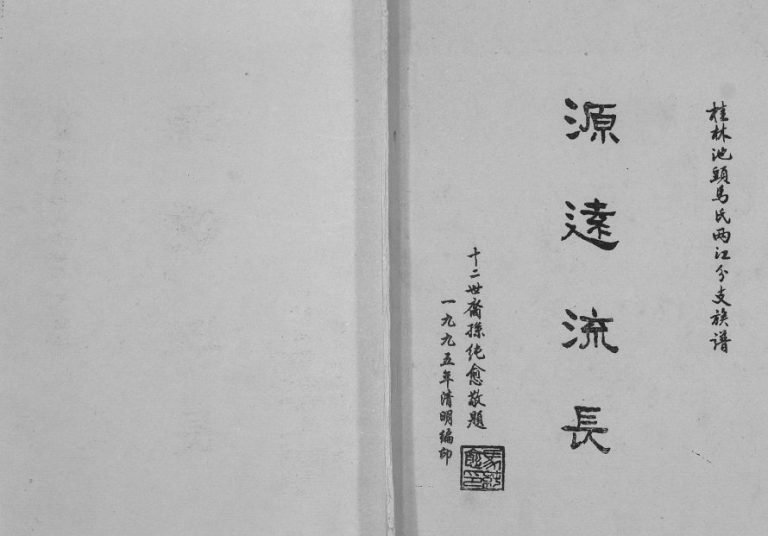 桂林池頭馬氏两江分支族谱
源遠流長
十二世裔孫纯愈敬題
一九九五年清明編印